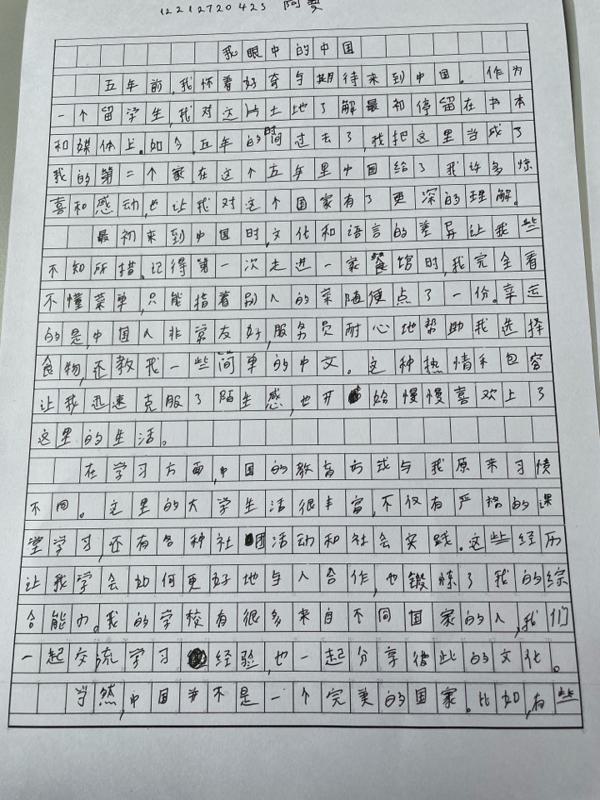 12212720423 阿
我眼中的中国
五年前,我怀着好奇与期待来到中国。作为
一个留学生,我对这片土地了解最初停留在书本
和媒体上。如今,五年的时间过去了,我把这里当成了
我的第二个家在这个五年里中国给了我许多惊
喜和感动,也让我对这个国家有了更深的理解。
最初来到中国时,文化和语言的差异让我些
不知所措。记得第一次走进一家餐馆时,我完全看
不懂菜单,只能指着别人的菜随便点了一份。幸运
的是,中国人非常友好,服务员耐心地帮助我选择
食物,还教我一些简单的中文。这种热情和包容
让我迅速克服了陌生感,也开始慢慢喜欢上了
这里的生活。
在学习方面,中国的教育方式与我原来习惯
不同。这里的大学生活很丰富,不仅有严格的课
堂学习,还有各种社团活动和社会实践。这些经历
让我学会如何更好地与人合作,也锻炼了我的综
合能力。我的学校有很多来自不同国家的人,我们
一起交流学习经验,也一起分享彼此的文化。
当然,中国并不是一个完美的国家。比如,有些